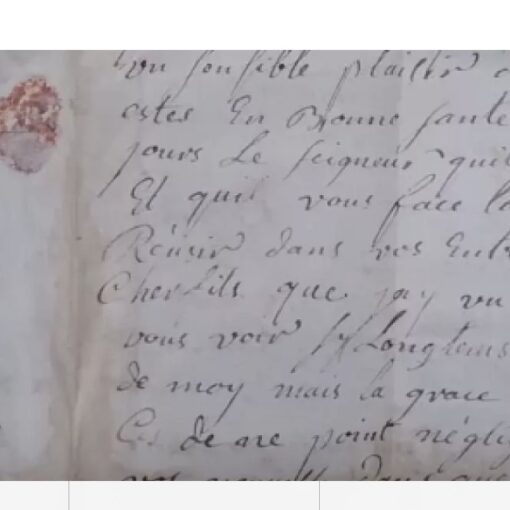 un sensible plaisir
estes En Bonne sante
jours Le seigneur quil
Et quil vous face la
Réüsir dans vos
Cher fils que jay vu
vous voir sy Longtems
de moy mais la grace
de ne point néglig
vos